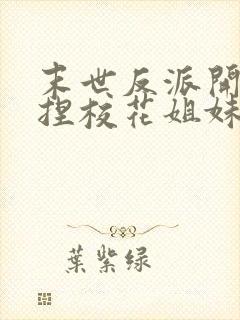 末世反派開
捏校花姐妹
葉紫绿